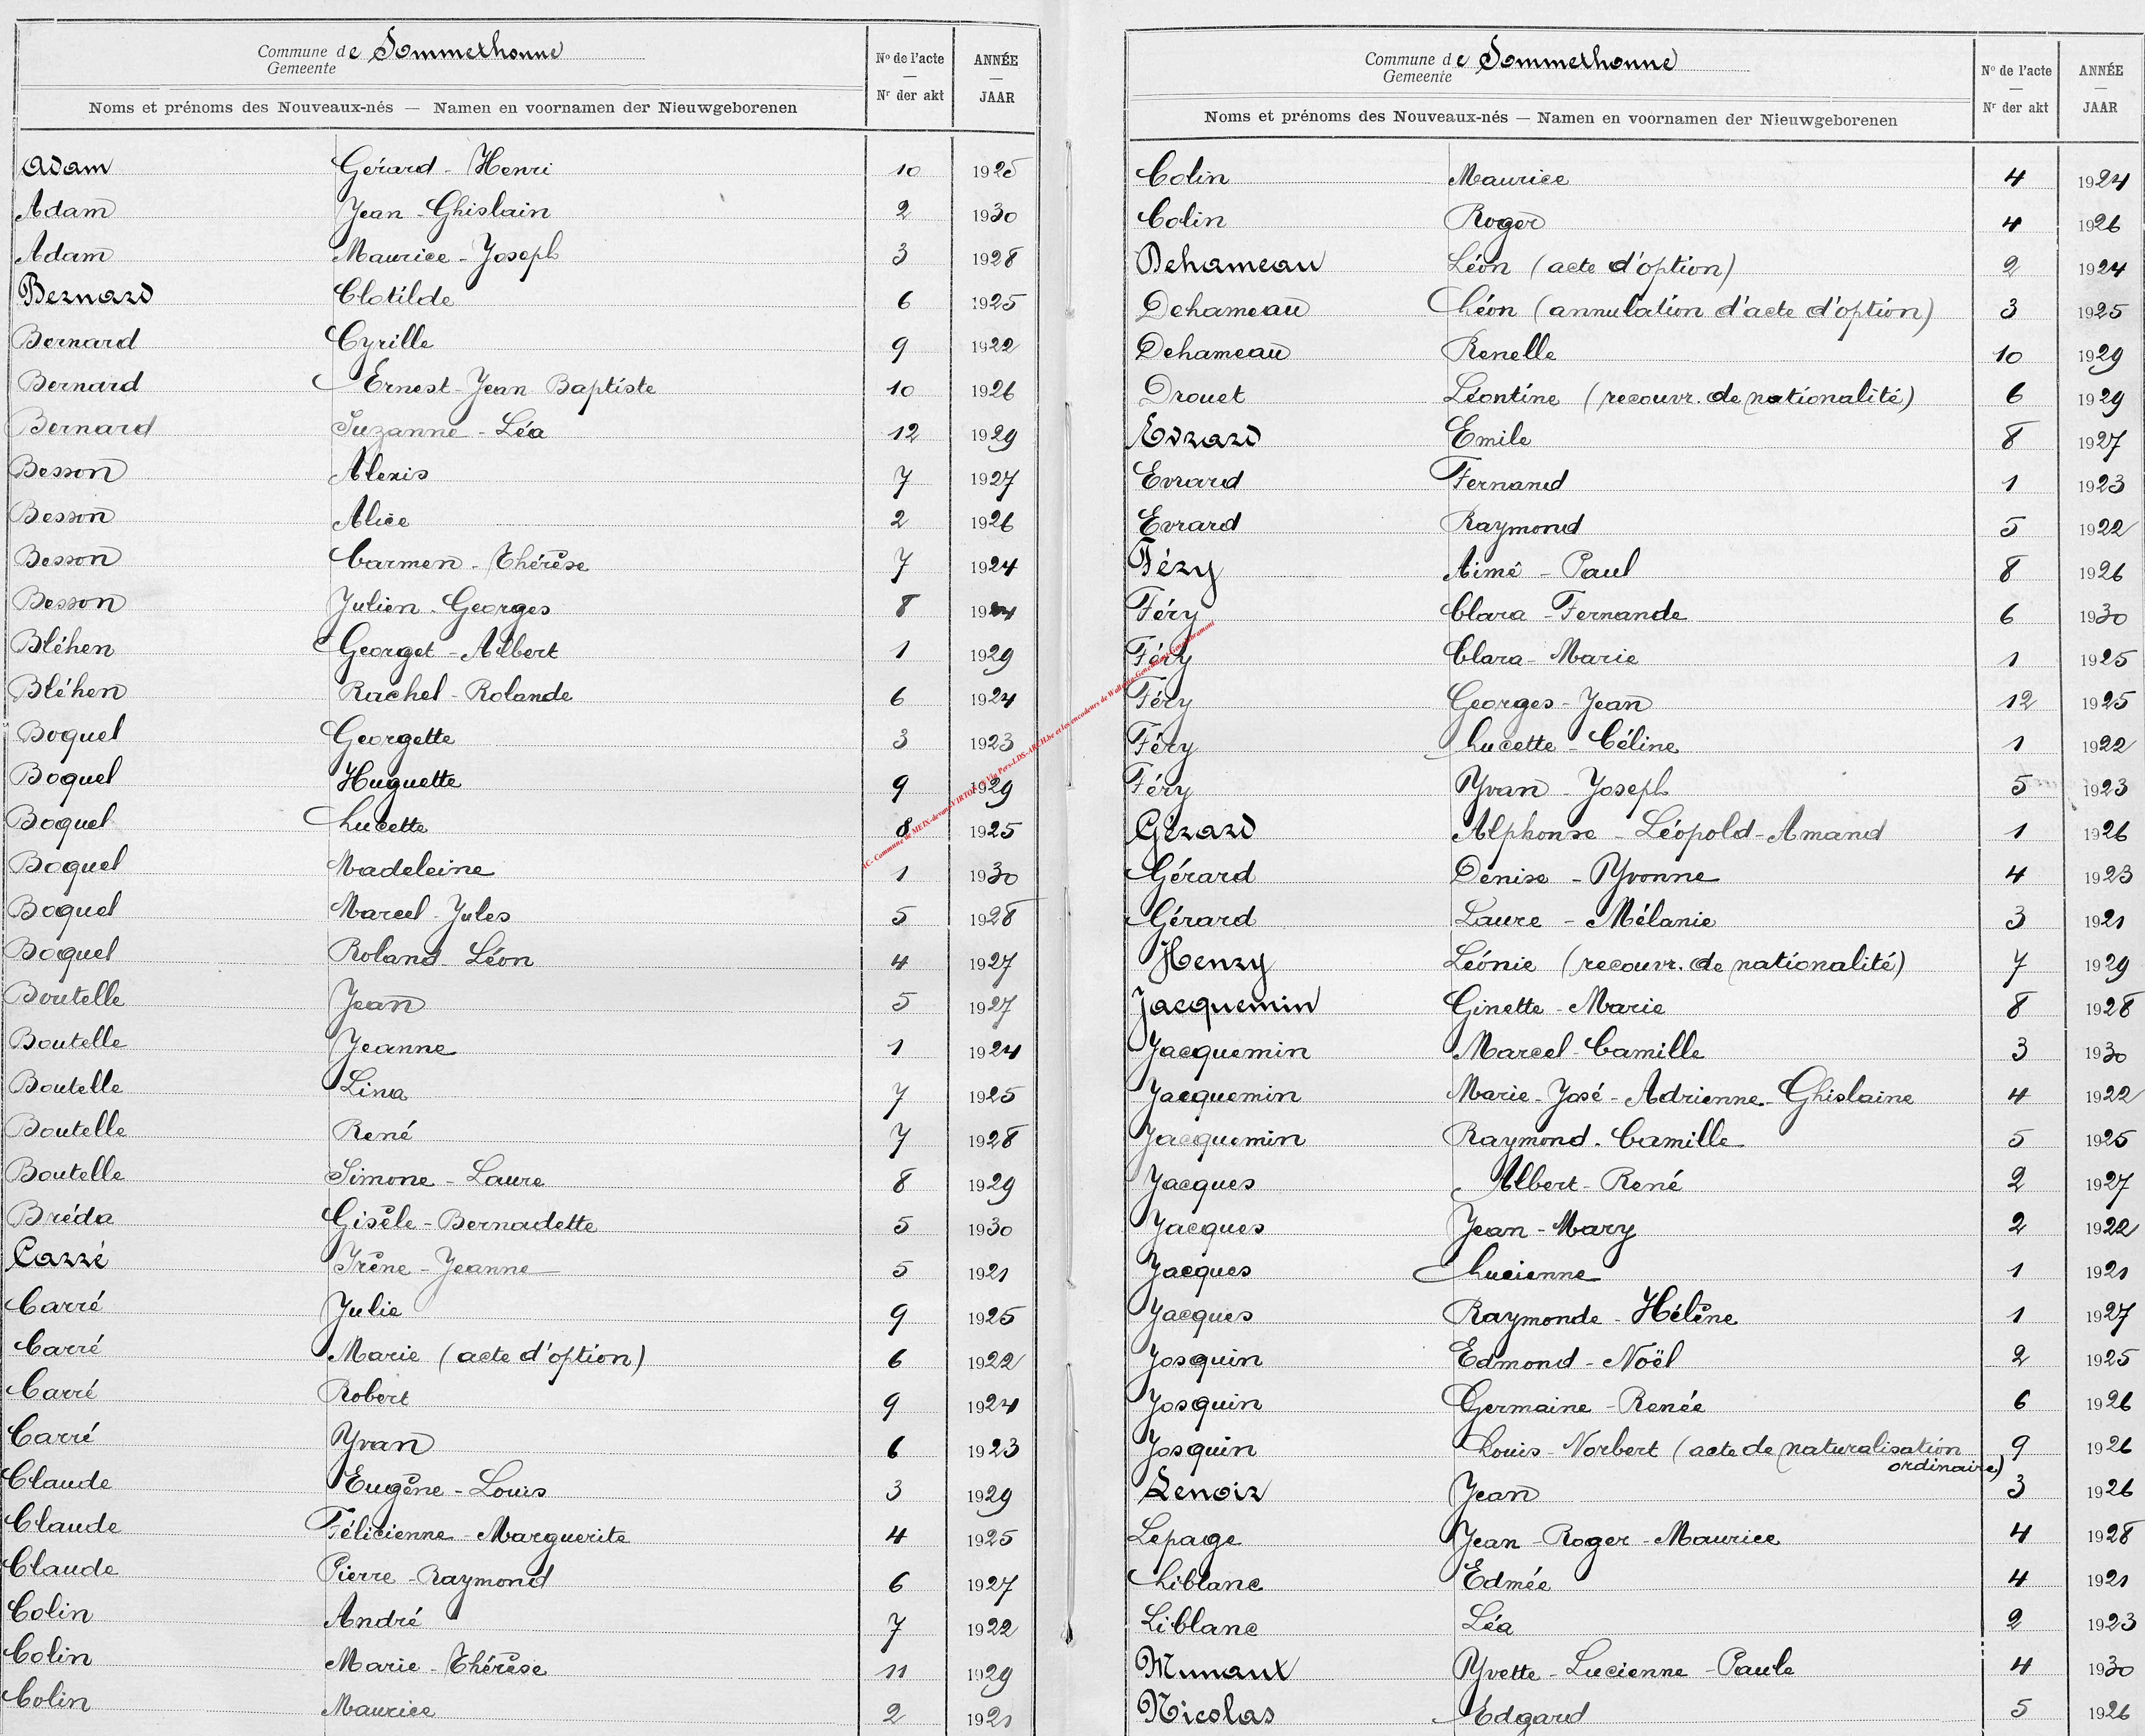 Commune de Sommethonne
Gemeente
Nº de l'acte — Nr der akt
ANNÉE — JAAR
Noms et prénoms des Nouveaux-nés — Namen en voornamen der Nieuwgeborenen
Adam Gérard - Henri 10 1925
Adam Jean - Ghislain 2 1930
Adam Maurice - Joseph 3 1928
Bernard Clotilde 6 1925
Bernard Cyrille 9 1922
Bernard Ernest - Jean Baptiste 10 1926
Bernard Suzanne - Léa 12 1929
Besson Alexis 7 1927
Besson Alice 2 1926
Besson Carmen - Thérèse 7 1924
Besson Julien - Georges 8 1924
Bléhen Georget - Albert 1 1929
Bléhen Rachel - Rolande 6 1924
Boquel Georgette 3 1923
Boquel Huguette 9 1929
Boquel Lucette 8 1925
Boquel Madeleine 1 1930
Boquel Marcel - Jules 5 1928
Boquel Roland Léon 4 1927
Boutelle Jean 5 1927
Boutelle Jeanne 1 1924
Boutelle Lina 7 1925
Boutelle René 7 1928
Boutelle Simone - Laure 8 1929
Bréda Gisèle - Bernadette 5 1930
Carré Irène - Jeanne 5 1921
Carré Julie 9 1925
Carré Marie (acte d'option) 6 1922
Carré Robert 9 1924
Carré Yvan 6 1923
Claude Eugène - Louis 3 1929
Claude Félicienne - Marguerite 4 1925
Claude Pierre - Raymond 6 1927
Colin André 7 1922
Colin Marie - Thérèse 11 1929
Colin Maurice 2 1921
Commune de Sommethonne
Gemeente
Nº de l'acte — Nr der akt
ANNÉE — JAAR
Noms et prénoms des Nouveaux-nés — Namen en voornamen der Nieuwgeborenen
Colin Maurice 4 1924
Colin Roger 4 1926
Dehameau Léon (acte d'option) 2 1924
Dehameau Léon (annulation d'acte d'option) 3 1925
Dehameau Renelle 10 1929
Drouet Léontine (recouvr. de nationalité) 6 1929
Evrard Emile 8 1927
Evrard Fernand 1 1923
Evrard Raymond 5 1922
Féry Aimé - Paul 8 1926
Féry Clara - Fernande 6 1930
Féry Clara - Marie 1 1925
Féry Georges - Jean 12 1925
Féry Lucette - Céline 1 1922
Féry Yvan - Joseph 5 1923
Gérard Alphonse - Léopold - Amand 1 1926
Gérard Denise - Yvonne 4 1923
Gérard Laure - Mélanie 3 1921
Henry Léonie (recouvr. de nationalité) 7 1929
Jacquemin Ginette - Marie 8 1928
Jacquemin Marcel - Camille 3 1930
Jacquemin Marie - José - Adrienne - Ghislaine 4 1922
Jacquemin Raymond - Camille 5 1925
Jacques Albert - René 2 1927
Jacques Jean - Mary 2 1922
Jacques Lucienne 1 1921
Jacques Raymonde - Hélène 1 1927
Josquin Edmond - Noël 2 1925
Josquin Germaine - Renée 6 1926
Josquin Louis - Norbert (acte de naturalisation 9 1926
ordinaire)
Lenoir Jean 3 1926
Lepage Jean - Roger - Maurice 4 1928
Liblanc Edmée 4 1921
Liblanc Léa 2 1923
Munaux Yvette - Lucienne - Paule 4 1930
Nicolas Edgard 5 1926